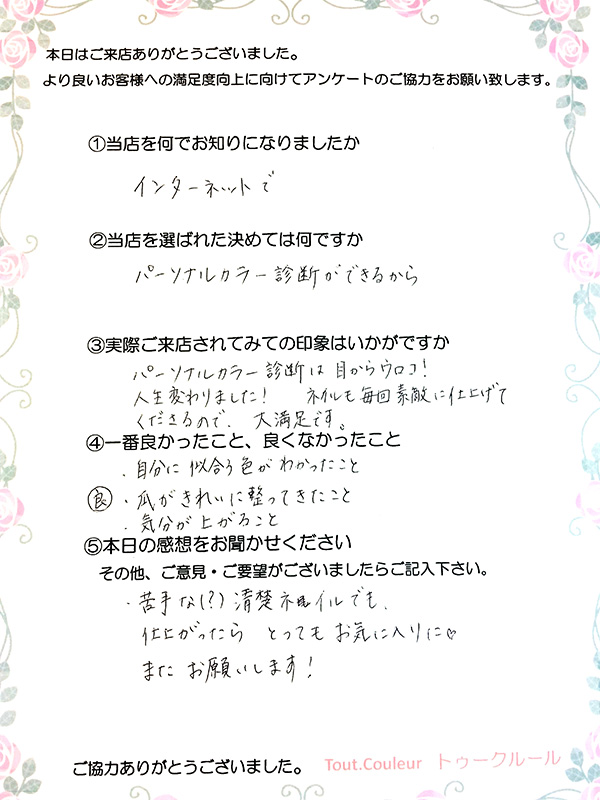 本日はご来店ありがとうございました。
より良いお客様への満足度向上に向けてアンケートのご協力をお願い致します。
①当店を何でお知りになりましたか
インターネットで
②当店を選ばれた決めては何ですか
パーソナルカラー診断ができるから
③実際ご来店されてみての印象はいかがですか
パーソナルカラー診断は目からウロコ!
人生変わりました! ネイルも毎回素敵に仕上げて
くださるので、大満足です。
④一番良かったこと、良くなかったこと
・自分に似合う色がわかったこと
良 ・爪がきれいに整ってきたこと
・気分が上がること
⑤本日の感想をお聞かせください
その他、ご意見・ご要望がございましたらご記入下さい。
・苦手な(?)清楚ネイルでも、
仕上がったら とってもお気に入りに♡
また お願いします!
ご協力ありがとうございました。
Tout.Couleur トゥークルール